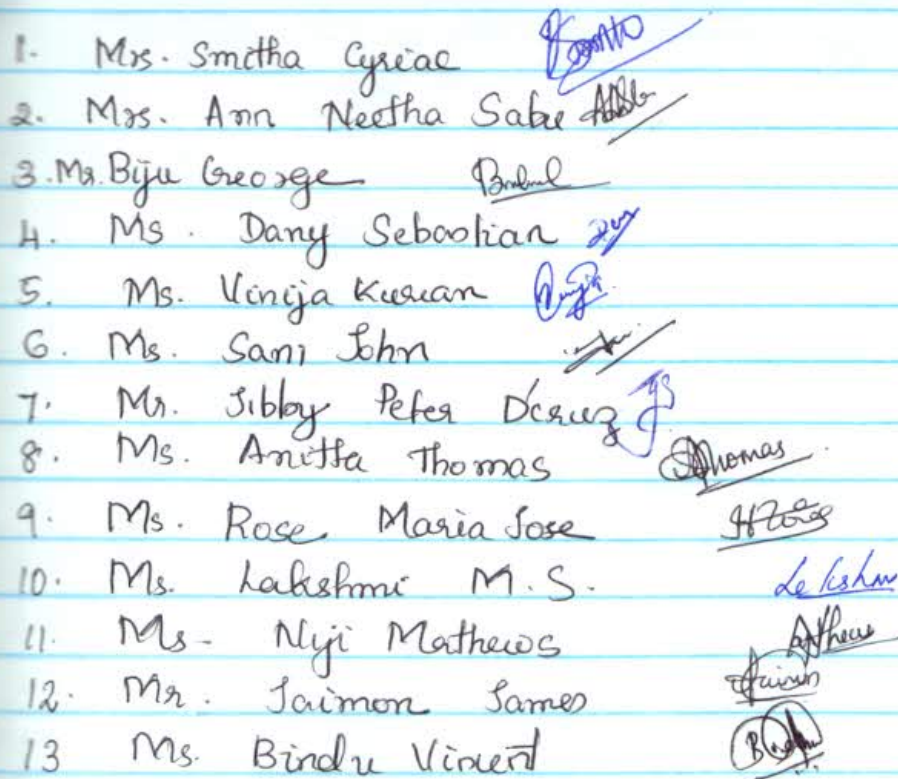 1. Mrs. Smitha Cyriac
2. Mrs. Ann Neetha Sabu
3. Mr. Biju George
4. Ms. Dany Sebastian
5. Ms. Vinija Kurian
6. Ms. Sani John
7. Mr. Jibby Peter D'cruz
8. Ms. Anitta Thomas Thomas
9. Ms. Rose Maria Jose
10. Ms. Lakshmi M.S.
11. Ms. Niji Mathews
12. Mr. Jaimon James
13 Ms. Bindu Vincent